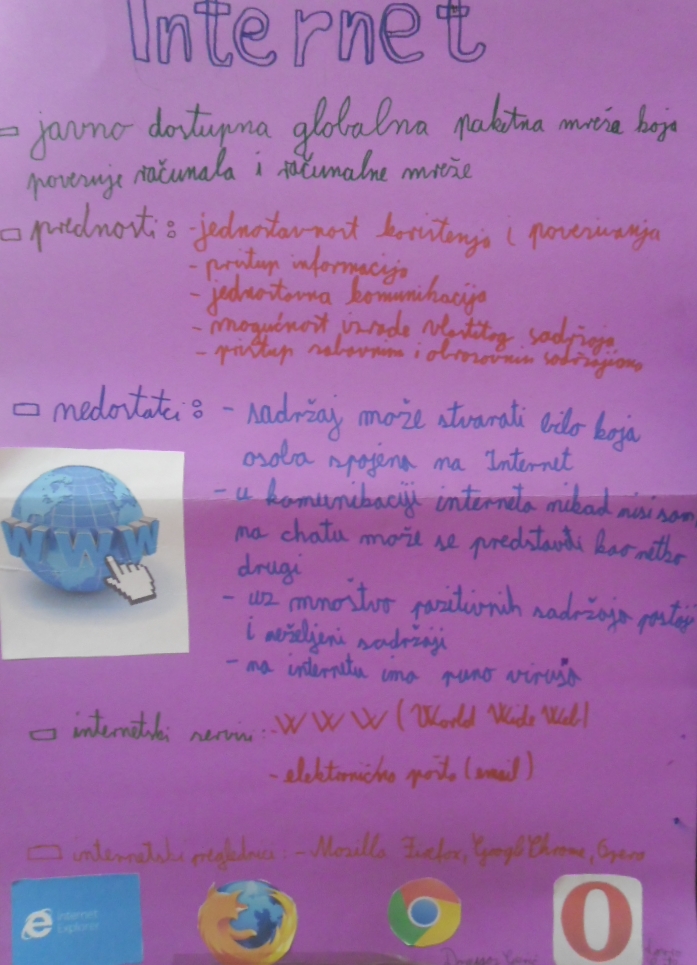 Internet
javno dostupna globalna paketna mreža koja
povezuje računala i računalne mreže
prednosti: - jednostavnost korištenja i povezivanja
- pristup informacija
- jednostavna komunikacija
- mogućnost izrade vlastitog sadržaja
- pristup zabavnim i obrazovnim sadržajima
nedostatci: - sadržaj može stvarati bilo koja
osoba spojena na Internet
- u komunikaciji interneta nikad nisi sam
na chatu može se predstaviti kao netko
drugi
- uz mnoštvo pozitivnih sadržaja postoje
i neželjeni sadržaji
WWW
- na internetu ima puno virusa
internetski servisi: - WWW (World Wide Web)
- elektronična pošta (email)
internetski preglednici: - Mozilla Firefox, Googl Chrome, Opera
internet
Explorer